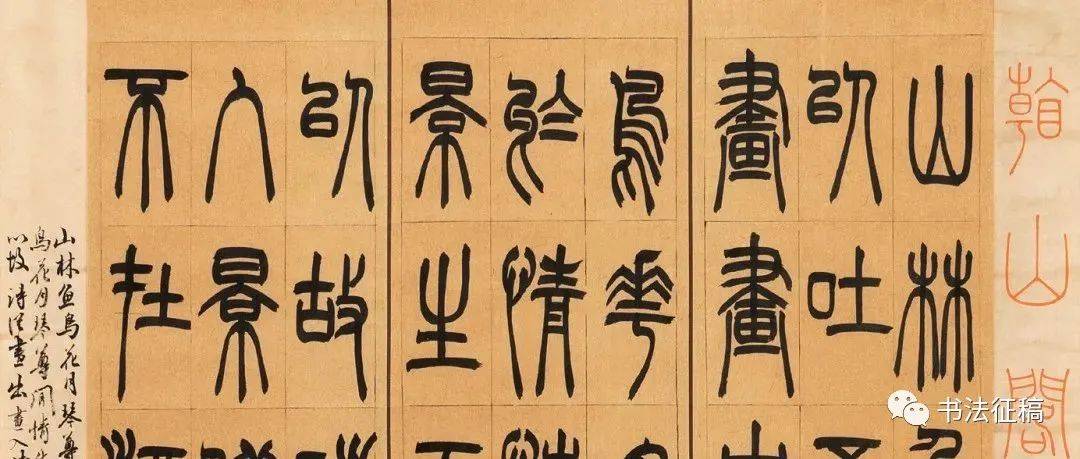 山閣
山林
以吐
畫畫
鳥花
於情
景生
以故
入景
不在
山林魚鳥花月琴尊
鳥花月琴尊間情
以故詩從畫出畫入
书法征稿